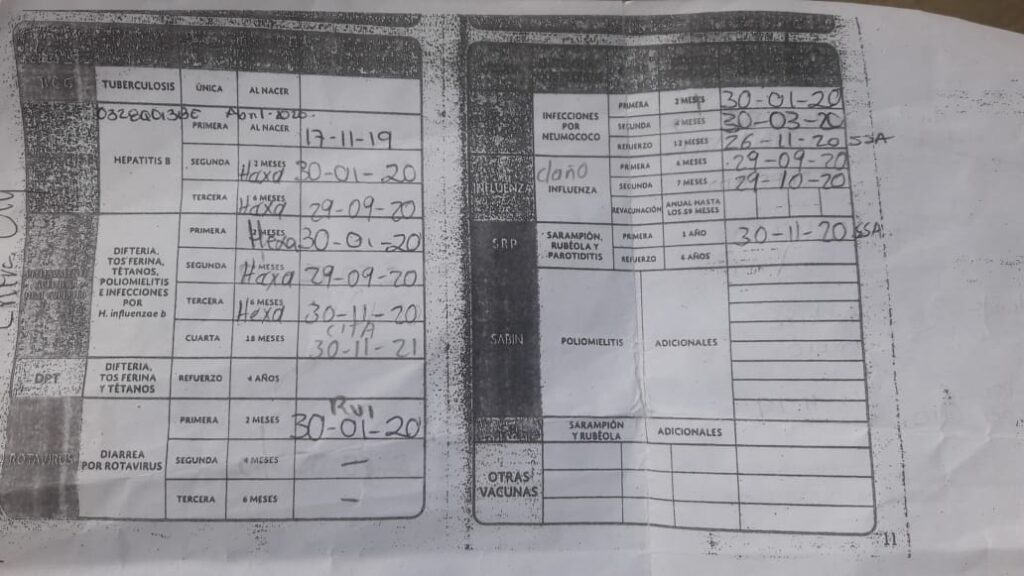 TUBERCULOSIS ÚNICA AL NACER
0328Q013BE Abril-2020
HEPATITIS B
PRIMERA AL NACER 17-11-19
SEGUNDA 2 MESES Haxa 30-01-20
TERCERA 6 MESES Haxa 29-09-20
DIFTERIA,
TOS FERINA,
TÉTANOS,
POLIOMIELITIS
E INFECCIONES
POR
H. influenzae b
PRIMERA 2 MESES Hexa 30-01-20
SEGUNDA MESES Haxa 29-09-20
TERCERA 6 MESES Hexa 30-11-20
CUARTA 18 MESES CITA 30-11-21
DPT
DIFTERIA,
TOS FERINA
Y TÉTANOS
REFUERZO 4 AÑOS
ROTAVIRUS
DIARREA
POR ROTAVIRUS
PRIMERA 2 MESES 30-01-20
SEGUNDA 4 MESES —
TERCERA 6 MESES —
INFECCIONES
POR
NEUMOCOCO
PRIMERA 2 MESES 30-01-20
SEGUNDA 4 MESES 30-03-20
REFUERZO 12 MESES 26-11-20 SSA
INFLUENZA
INFLUENZA
PRIMERA 6 MESES 29-09-20
SEGUNDA 7 MESES 29-10-20
REVACUNACIÓN ANUAL HASTA
LOS 59 MESES
SRP
SARAMPIÓN,
RUBÉOLA Y
PAROTIDITIS
PRIMERA 1 AÑO 30-11-20 SSA
REFUERZO 6 AÑOS
SABIN POLIOMIELITIS ADICIONALES
SARAMPIÓN
Y RUBÉOLA
ADICIONALES
OTRAS
VACUNAS
11